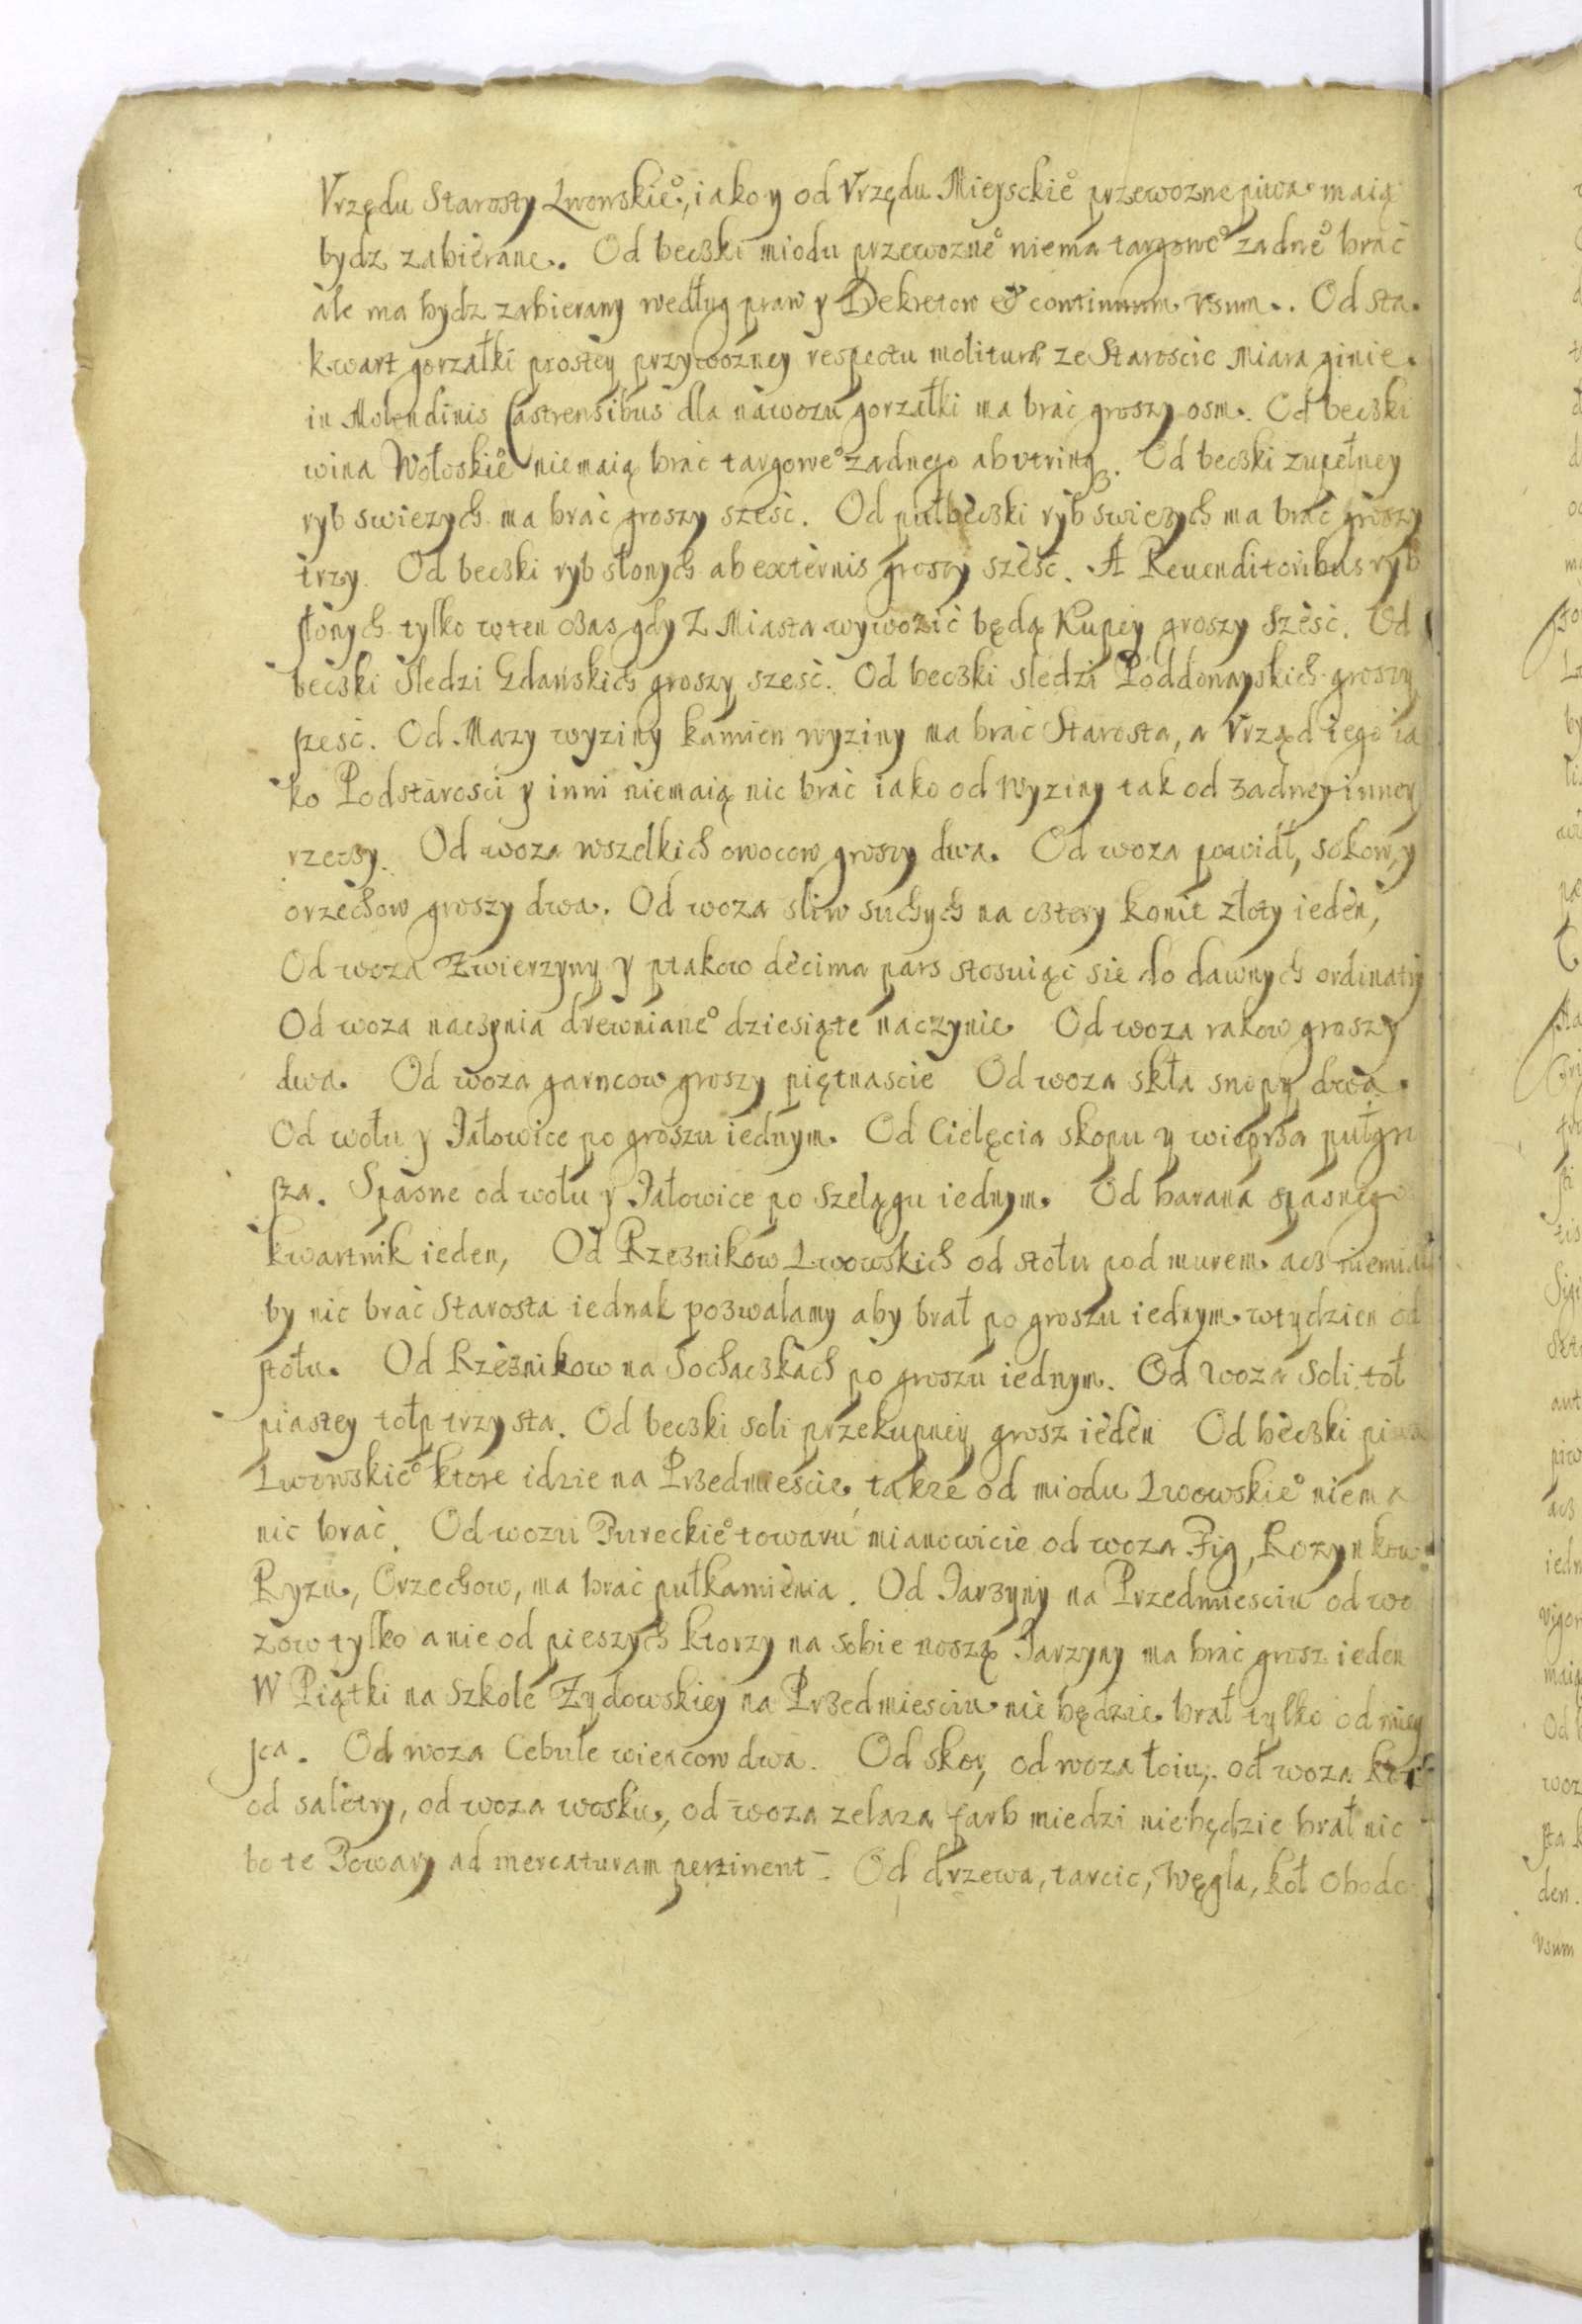 Vrzędu Starosty Lwowskie°, iako y od Vrzędu Mieysckie° przewozne piwa maią
bydz zabierane. Od beczki miodu przewozne° niema targowe° zadne° brać
ale ma bydz zabierany według praw y Dekretow & continuum vsum. Od sta
kwart gorzałki prostey przywozney respectu molituræ ze Staroscie miara ginie
in Molendinis Castrensibus dla nawozu gorzałki ma brać groszy osm. Od beczki
wina Wołoskie° niemaią brać targowe° zadnego ab vtrinq. Od beczki zupełney
ryb swiezych ma brać groszy sześć. Od pułbeczki ryb swiezych ma brać groszy
trzy. Od beczki ryb słonych ab externis groszy sześć. A Reuenditoribus ryb
słonych tylko w ten czas gdy z Miasta wywozić będą Kupcy groszy sześć. Od
beczki sledzi Gdańskich groszy sześć. Od beczki sledzi Poddonayskich groszy
sześć. Od Mazy wyziny kamien wyziny ma brać Starosta, a Vrząd iego ia
ko Podstarosci y inni niemaią nic brać iako od Wyziny tak od zadney inney
rzeczy. Od woza wszelkich owocow groszy dwa. Od woza powidł, sokow, y
orzechow groszy dwa. Od woza sliw suchych na cztery konie złoty ieden,
Od woza zwierzyny y ptakow decima pars stosuiąc sie do dawnych ordinatij
Od woza naczynia drewniane° dziesiąte naczynie Od woza rakow groszy
dwa. Od woza garncow groszy piętnascie Od woza skła snopy dwa.
Od wołu y Jałowice po groszu iednym. Od Cielęcia skopu y wieprza pułgro
sza. Spasne od wołu y Jałowice po szelągu iednym. Od barana spasnego
kwartnik ieden, Od Rzeznikow Lwowskich od stołu pod murem acz niemiał
by nic brać Starosta iednak pozwalamy aby brał po groszu iednym w tydzien od
stołu. Od Rzeznikow na Sochaczkach po groszu iednym. Od Woza Soli toł
piastey tołp trzysta. Od beczki soli przekupney grosz ieden Od beczki piwa
Lwowskie° ktore idzie na Przedmiescie, takze od miodu Lwowskie° niema
nic brać. Od wozu Tureckie° towaru mianowicie od woza Fig, Rozynkow
Ryzu, Orzechow, ma brać pułkamienia. Od Jarzyny na Przedmiesciu od wo
zow tylko a nie od pieszych ktorzy na sobie noszą Jarzyny ma brać grosz ieden
W Piątki na Szkole Zydowskiey na Przedmiesciu nie będzie brał tylko od miey
sca. Od woza Cebule wiencow dwa. Od skor, od woza łoiu, od woza
od saletry, od woza wosku, od woza zelaza farb miedzi niebędzie brał nic
bo te Towary ad mercaturam pertinent. Od drzewa, tarcic, węgla, koł obodo